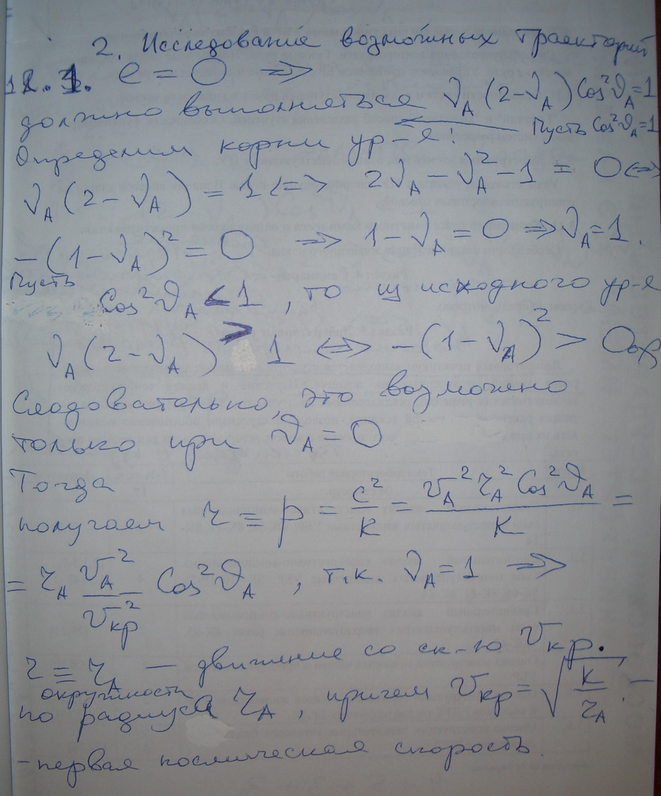 2. Исследование возможных траекторий
1. e = 0 ⇒
должно выполняться ν_A (2-ν_A) Cos²ϑ_A = 1
Пусть Cos²ϑ_A = 1
Определим корни ур-я:
ν_A (2 - ν_A) = 1 <=> 2ν_A - ν_A² - 1 = 0 <=>
-(1-ν_A)² = 0 ⇒ 1-ν_A = 0 ⇒ ν_A = 1.
Пусть Cos²ϑ_A < 1, то из исходного ур-я
ν_A (2-ν_A) > 1 <=> -(1-ν_A)² > 0
Следовательно, это возможно
только при ϑ_A = 0
Тогда
получаем r ≡ p = c²/K = v_A² r_A² Cos²ϑ_A / K =
= r_A v_A²/v_кр² Cos²ϑ_A, т.к. ν_A = 1 ⇒
r ≡ r_A — движение со ск-ю v_кр.
по окружности радиуса r_A, причем v_кр = √(K/r_A) -
- первая космическая скорость.